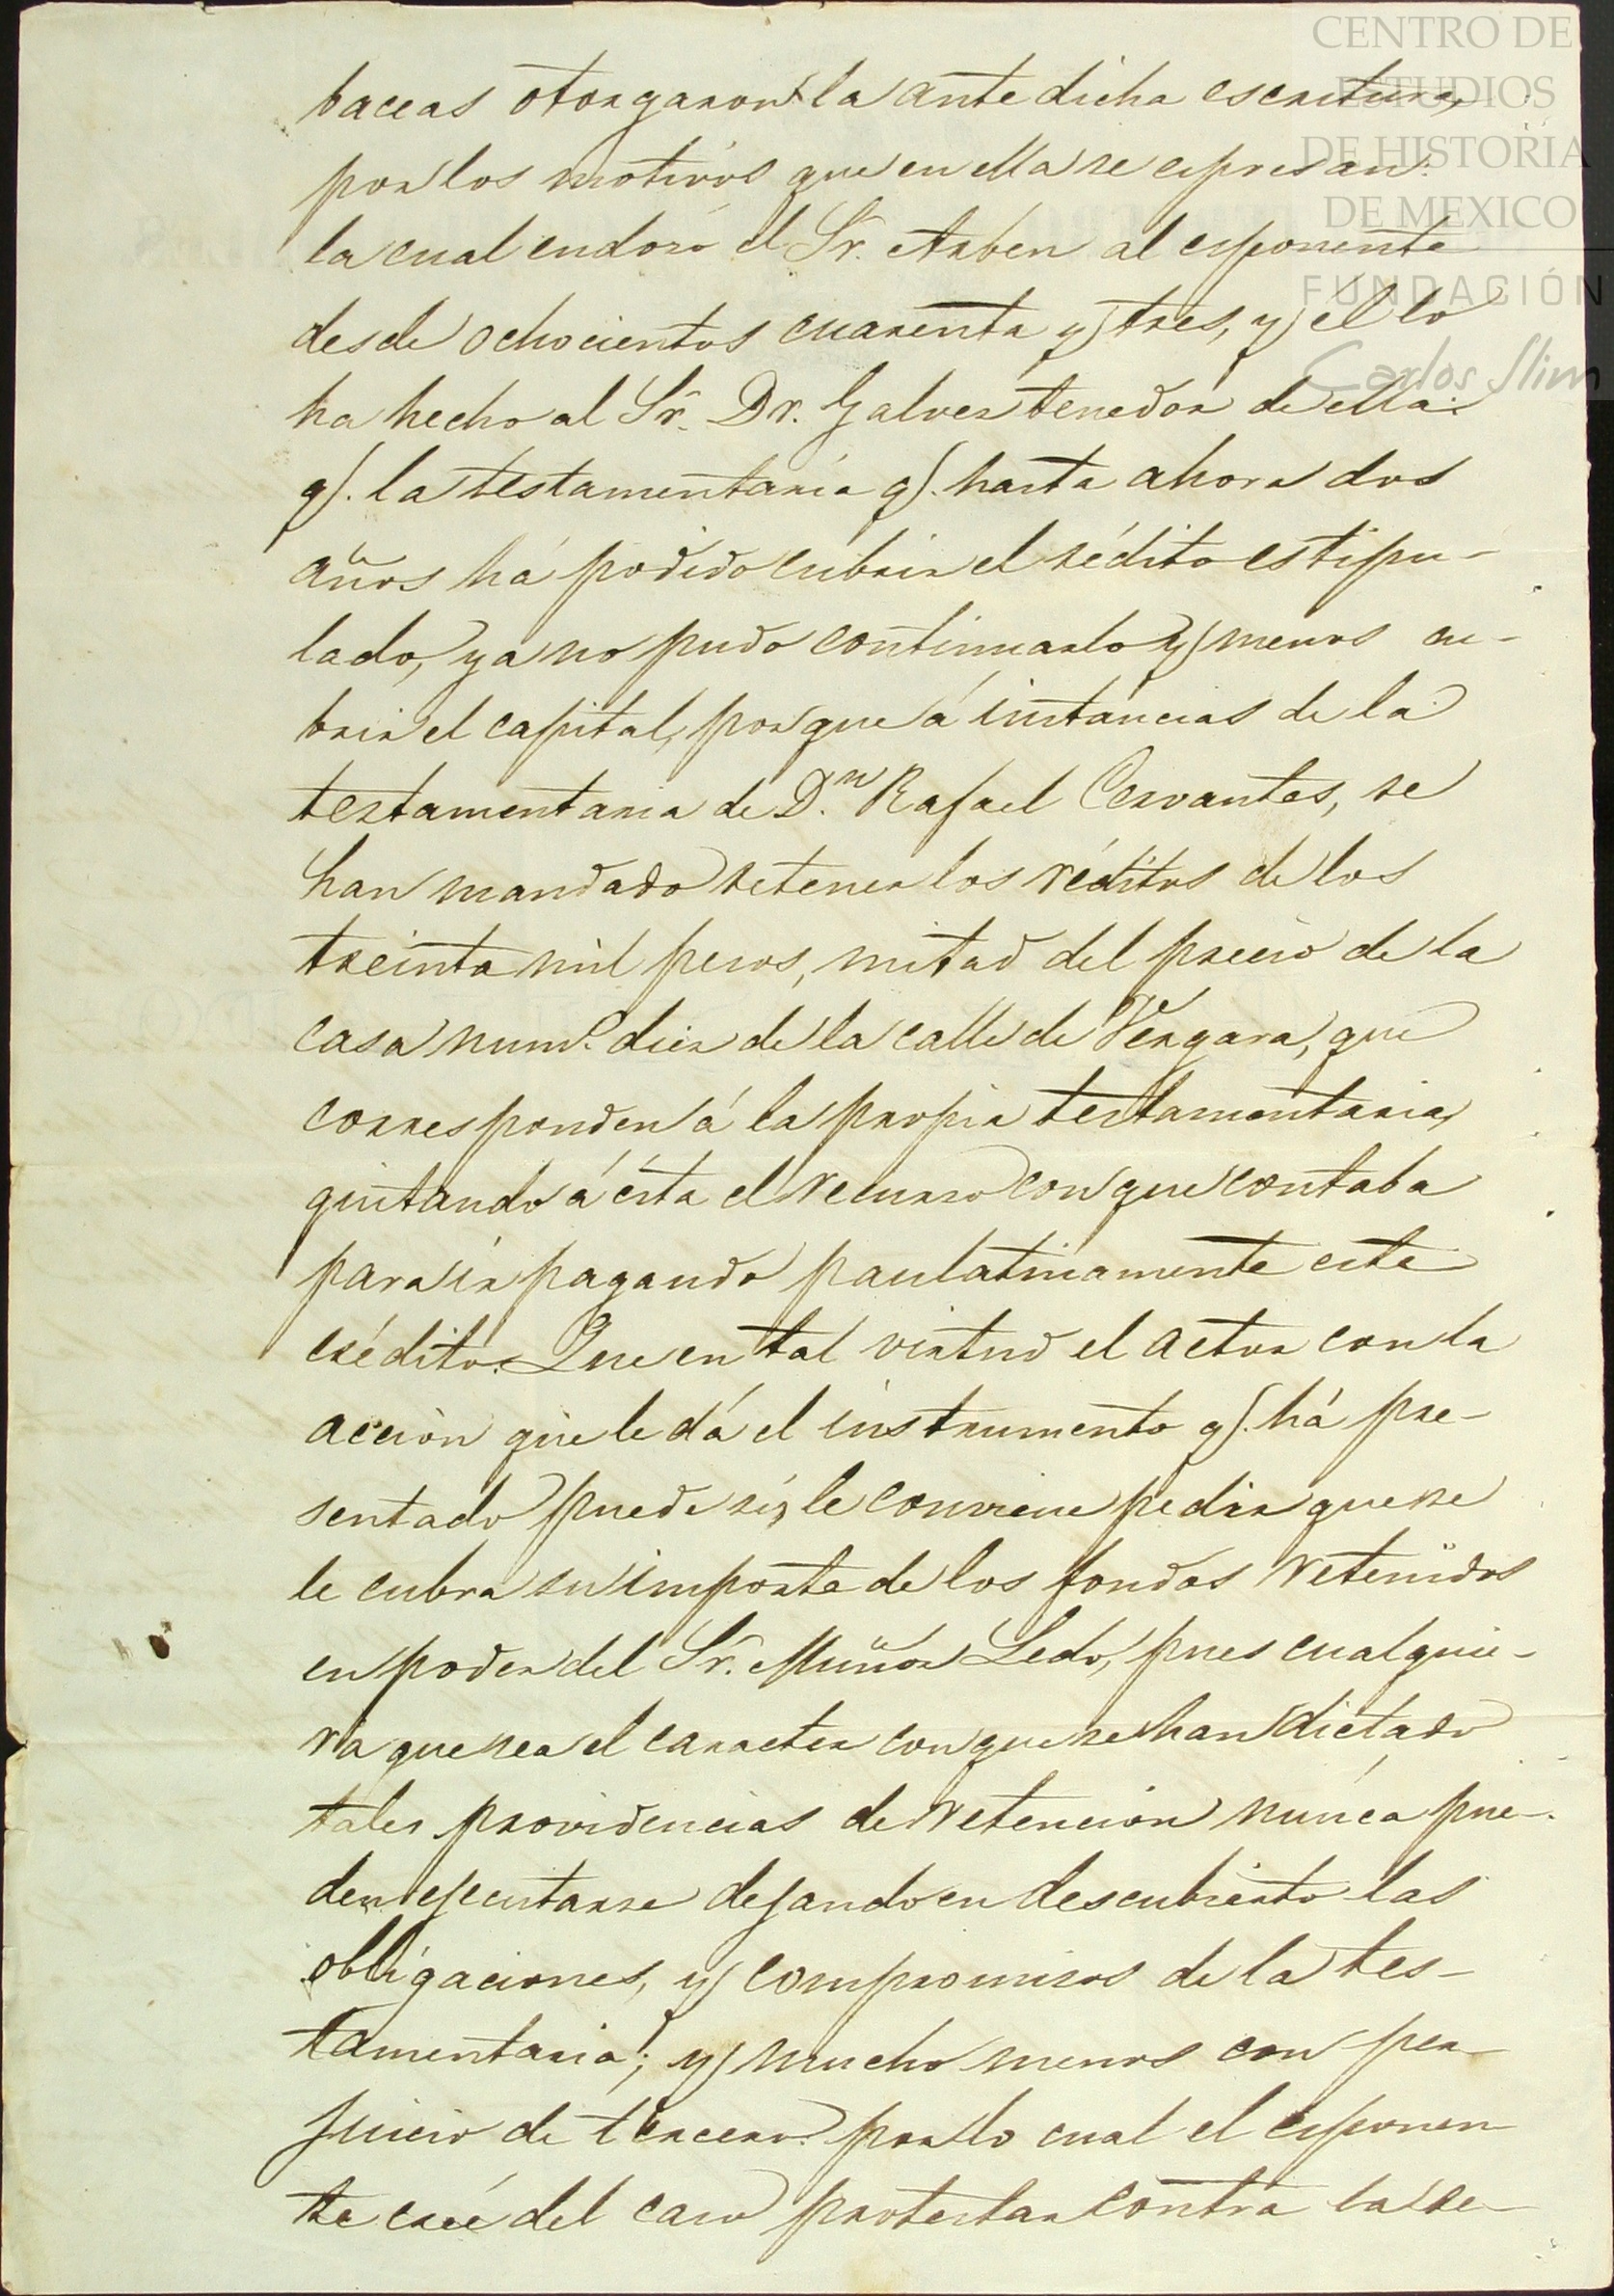 CENTRO DE
ESTUDIOS
DE HISTORIA
DE MEXICO
FUNDACIÓN
Carlos Slim
baceas otorgaron la antedicha escritura,
por los motivos que en ella se espresan:
la cual endosó el Sr. Arben al esponente
desde ochocientos cuarenta y tres, y él lo
ha hecho al Sr. Dr. Galvez tenedor de ella:
q. la testamentaría q. hasta ahora dos
años há podido cubrir el rédito estipu-
lado, ya no pudo continuarlo y menos cu-
brir el capital, porque á instancias de la
testamentaria de D.n Rafael Cervantes, se
han mandado retener los réditos de los
treinta mil pesos, mitad del precio de la
casa num.o diez de la calle de Vergara, que
corresponden á la propia testamentaria,
quitando á ésta el recurso con que contaba
para ir pagando paulatinamente este
crédito. Que en tal virtud el actor con la
acción que le dá el instrumento q. há pre-
sentado puede si le conviene pedir que se
le cubra su importe de los fondos retenidos
en poder del Sr. Muñoz Ledo, pues cualquie-
ra que sea el caracter con que se han dictado
tales providencias de retención nunca pue-
den ejecutarse dejando en descubierto las
obligaciones, y compromisos de la tes-
tamentaria; y mucho menos con per-
juicio de tercero: por lo cual el esponen-
te creé del caso protestar contra la re-